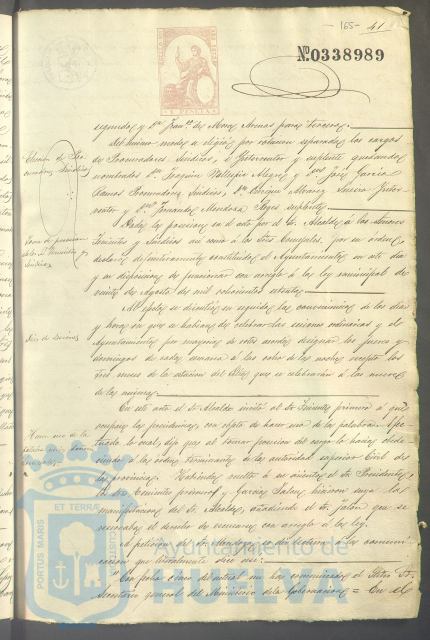 165-
41
Nº 0338989
segundo, y Dn. Franco. de Mora Arenas para tercero.
Del mismo modo se eligió por votacion separada los cargos
de Procuradores Síndicos, é Interventor y suplente quedando
nombrados Dn. Joaquin Alegre y Dn. José Garcia
Ramos Procuradores Síndicos, Dn. Enrique Alvarez Inter-
ventor y Dn. Fernando Mendoza Reyes suplente
Dada la posesion en el acto por el Sr. Alcalde á los Señores
Tenientes y Síndicos asi como á los tres Concejales, por su orden
declaró definitivamente constituido el Ayuntamiento en este dia
y en disposicion de funcionar con arreglo á la ley municipal de
veinte de Agosto de mil ochocientos setenta.
se discutió en seguida las conveniencias de los dias
y hora en que se habian de celebrar las sesiones ordinarias y el
Ayuntamiento por mayoria de votos acordó designar los jueves y
domingos de cada semana á las ocho de la noche excepto los
tres meses de la estacion del Estio que se celebrarán á las nueve
de la misma.
En este acto el Sr. Alcalde invitó al Sr. Teniente primero á que
la presidencia con objeto de hacer uso de la palabra.
lo cual, dijo que al tomar posesion del cargo lo habia
á la orden terminante de la autoridad superior Civil de
la provincia. Habiendo vuelto á su asiento el Sr. Presidente,
el Sr. Teniente primero y Garcia hicieron suya la
manifestacion del Sr. Alcalde, añadiendo el Sr. que se
reservaba el derecho de con arreglo á la ley.
A peticion del Sr. Mendoza se dió lectura á la comuni-
cacion que literalmente dice asi:
"Con fecha cinco del actual me ha comunicado el Sr.
Secretario general del Ministerio de la Gobernacion = En el
Eleccion de Pro-
curadores Síndicos
Toma de posesion
de los Tenientes y
Síndicos
Dias de sesiones
Hacer uso de la
palabra
PORTUS MARIS ET TERRÆ CUSTODIA
Ayuntamiento de
HUELVA